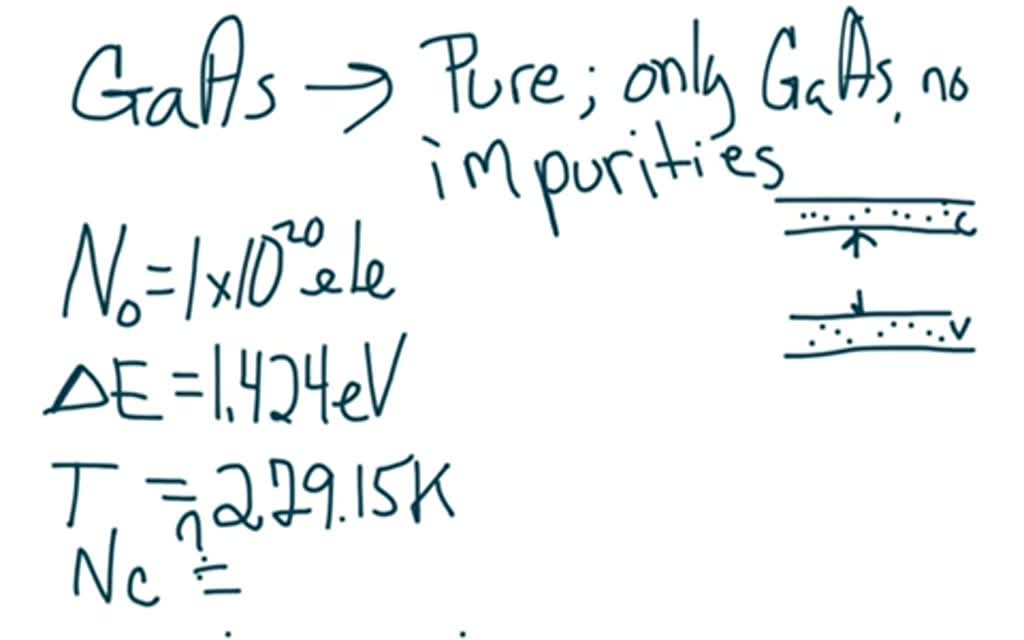 GaAs → Pure; only GaAs, no
impurities
N₀=1x10²⁰ ele
C
ΔE=1.424eV
V
T = 229.15K
Nc ?=